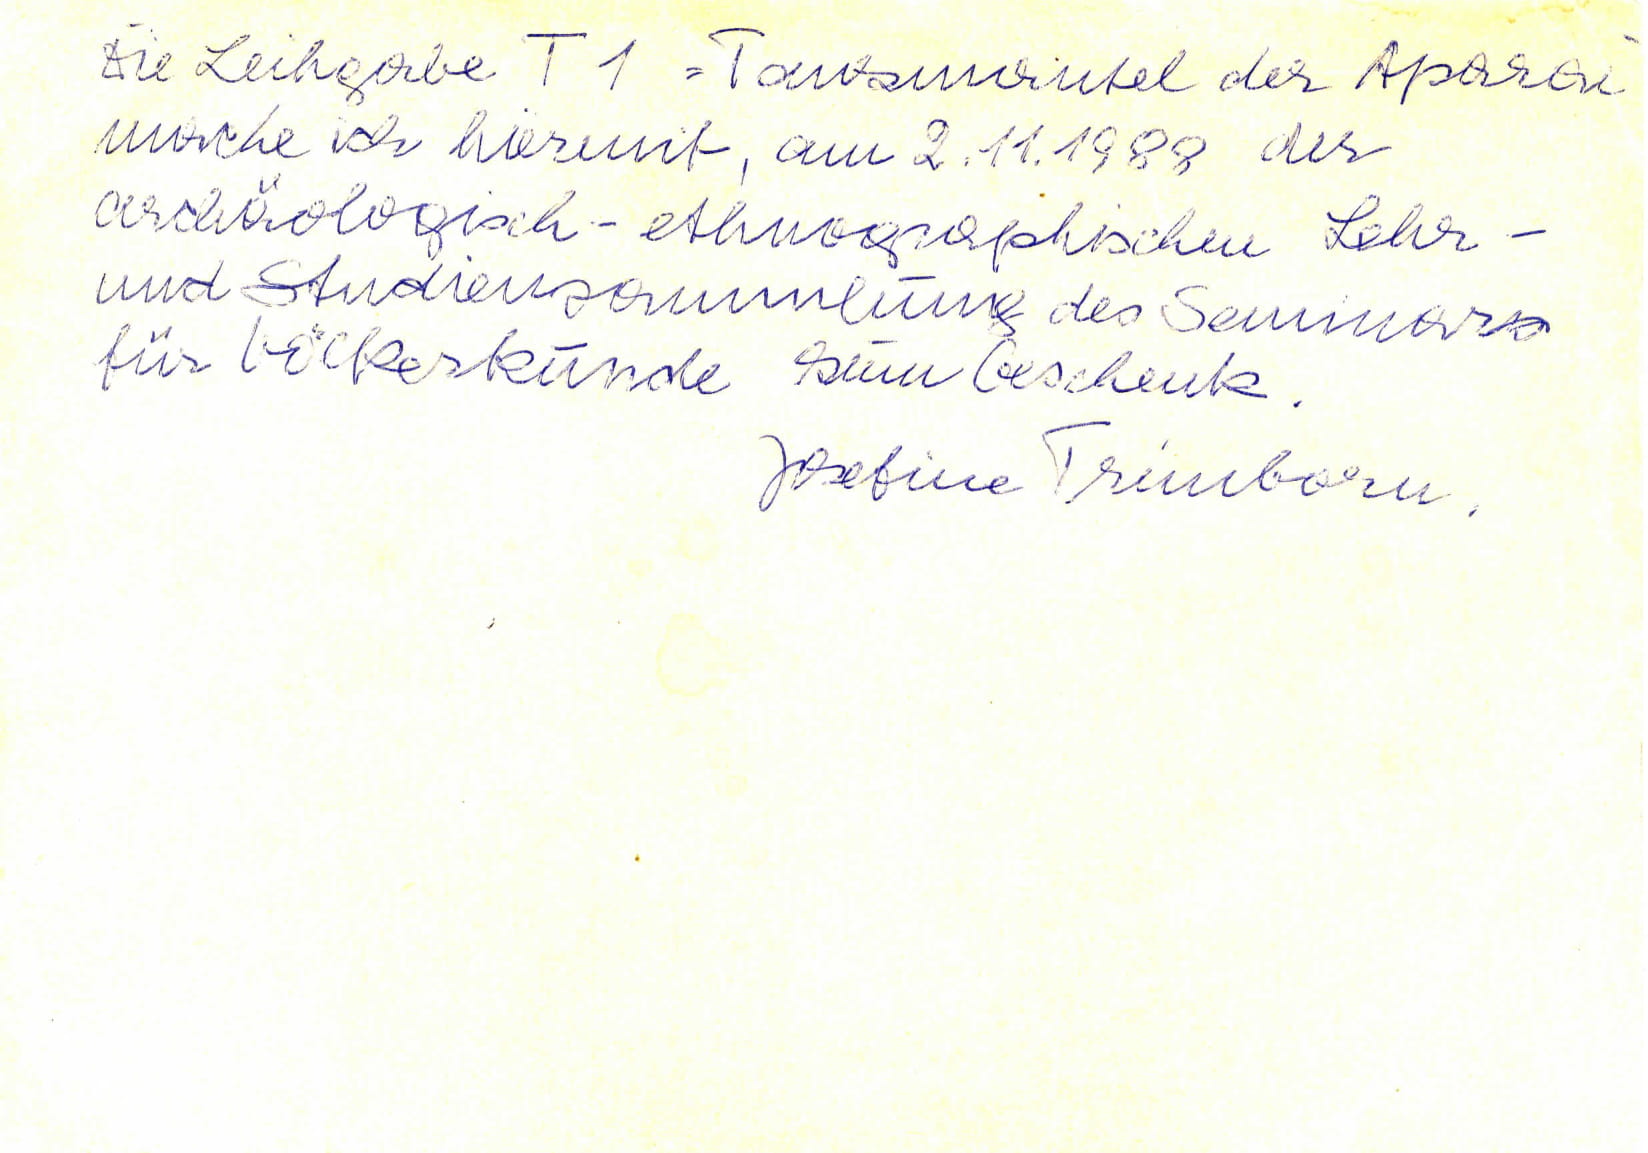 Die Leihgabe T 1 = Tanzmantel der Aparai
mache ich hiermit, am 2.11.1988 der
archäologisch-ethnographischen Lehr-
und Studiensammlung des Seminars
für Völkerkunde zum Geschenk.
Josefine Trimborn.